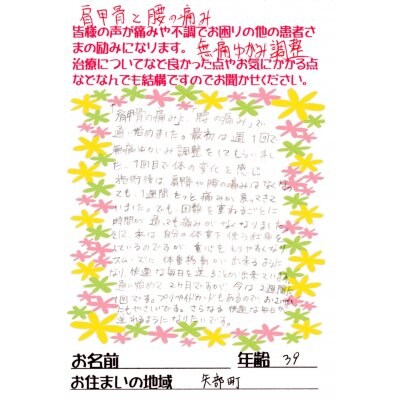 肩甲骨と腰の痛み
皆様の声が痛みや不調でお困りの他の患者さ
まの励みになります。無痛ゆがみ調整
治療についてなど良かった点やお気にかかる点
などなんでも結構ですのでお聞かせください。
「肩甲骨の痛みと、腰の痛み」で
通い始めました。最初は週1回で
無痛ゆがみ調整をしてもらいまし
た。1回目で体の変化を感じ
施術後は肩や腰の痛みはなく
ても、1週間もつと痛みが戻ってきて
いました。でも回数を重ねるごとに
時間が経っても痛みがなくなりました。
私は自分の体重で
しているのですが、重心もとりやすくなり
スムーズに体重移動が出来るように
なり快適な毎日を送ることが出来ています。
通い始めて2ヶ月ですが、今は2週間に
1回です。プリペイドカードもあるので、お財布に
もやさしいです。さらなる快適な毎日が
送れるようになりたいです。
お名前 年齢 39
お住まいの地域 矢部町